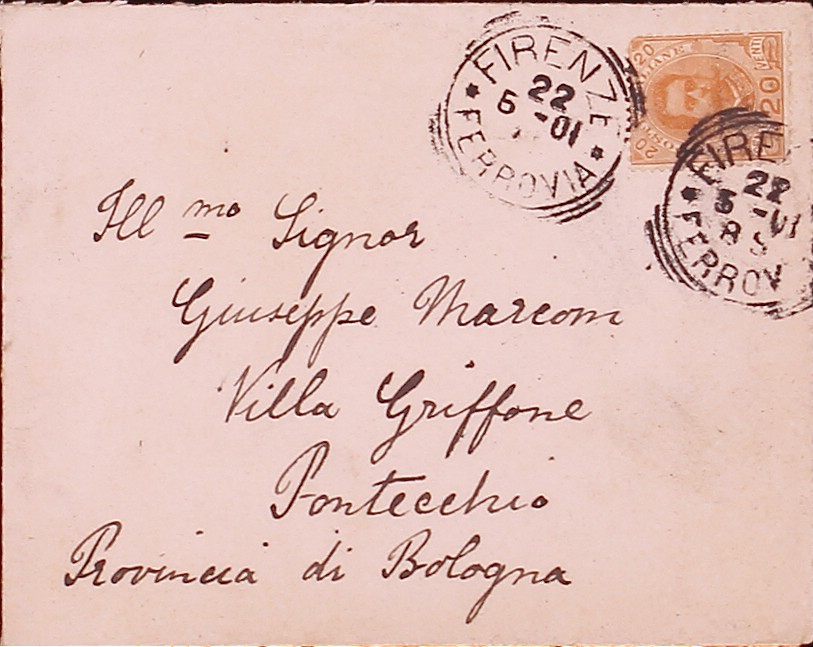 FIRENZE
22
5 -01
FERROVIA
20
20
20
VENTI
FIRE
22
5 -01
8 S
FERROV
Ill mo Signor
Giuseppe Marconi
Villa Griffone
Pontecchio
Provincia di Bologna